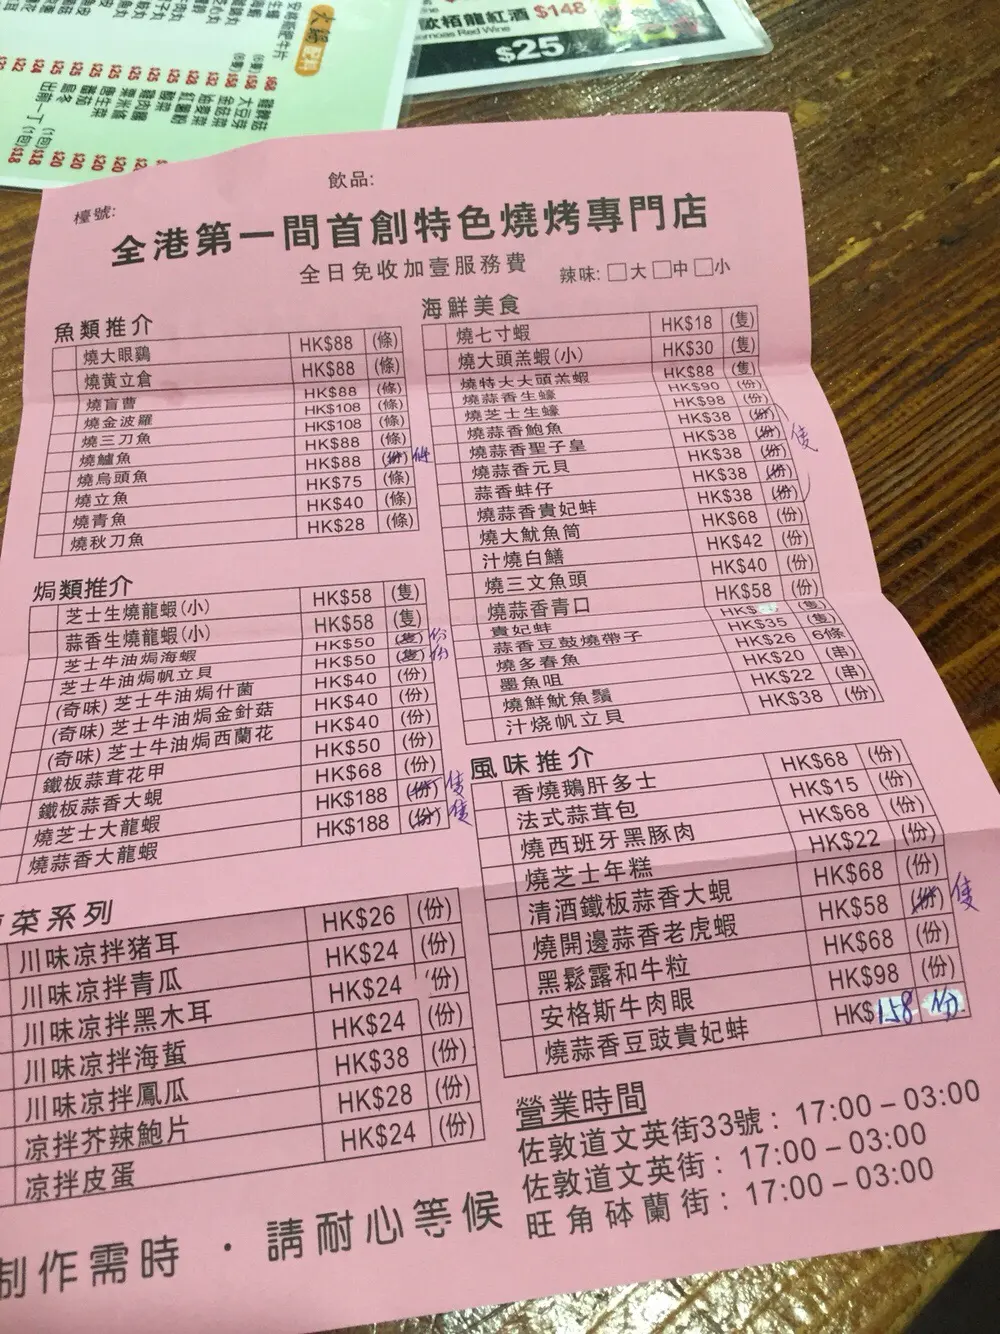 大鍋配料
歐栢龍紅酒 $148
Red Wine
$25
飲品:
檯號:
全港第一間首創特色燒烤專門店
全日免收加壹服務費
辣味: □大 □中 □小
魚類推介
燒大眼鷄 HK$88 (條)
燒黃立倉 HK$88 (條)
燒盲曹 HK$88 (條)
燒金波羅 HK$108 (條)
燒三刀魚 HK$108 (條)
燒鱸魚 HK$88 (條)
燒烏頭魚 HK$88 (份) 條
燒立魚 HK$75 (條)
燒青魚 HK$40 (條)
燒秋刀魚 HK$28 (條)
焗類推介
芝士生燒龍蝦(小) HK$58 (隻)
蒜香生燒龍蝦(小) HK$58 (隻)
芝士牛油焗海蝦 HK$50 (隻) 份
芝士牛油焗帆立貝 HK$50 (隻) 份
(奇味) 芝士牛油焗什菌 HK$40 (份)
(奇味) 芝士牛油焗金針菇 HK$40 (份)
(奇味) 芝士牛油焗西蘭花 HK$40 (份)
鐵板蒜茸花甲 HK$50 (份)
鐵板蒜香大蜆 HK$68 (份)
燒芝士大龍蝦 HK$188 (份) 隻
燒蒜香大龍蝦 HK$188 (份) 隻
菜系列
川味凉拌猪耳 HK$26 (份)
川味凉拌青瓜 HK$24 (份)
川味凉拌黑木耳 HK$24 (份)
川味凉拌海蜇 HK$24 (份)
川味凉拌鳳瓜 HK$38 (份)
凉拌芥辣鮑片 HK$28 (份)
凉拌皮蛋 HK$24 (份)
海鮮美食
燒七寸蝦 HK$18 (隻)
燒大頭羔蝦(小) HK$30 (隻)
燒特大大頭羔蝦 HK$88 (隻)
燒蒜香生蠔 HK$90 (份)
燒芝士生蠔 HK$98 (份)
燒蒜香鮑魚 HK$38 (份)
燒蒜香聖子皇 HK$38 (份) 隻
燒蒜香元貝 HK$38 (份)
蒜香蚌仔 HK$38 (份)
燒蒜香貴妃蚌 HK$38 (份)
燒大魷魚筒 HK$68 (份)
汁燒白鱔 HK$42 (份)
燒三文魚頭 HK$40 (份)
燒蒜香青口 HK$58 (份)
貴妃蚌 HK$ (隻)
蒜香豆鼓燒帶子 HK$35 (隻)
燒多春魚 HK$26 6條
墨魚咀 HK$20 (串)
燒鮮魷魚鬚 HK$22 (串)
汁烧帆立貝 HK$38 (份)
風味推介
香燒鵝肝多士 HK$68 (份)
法式蒜茸包 HK$15 (份)
燒西班牙黑豚肉 HK$68 (份)
燒芝士年糕 HK$22 (份)
清酒鐵板蒜香大蜆 HK$68 (份)
燒開邊蒜香老虎蝦 HK$58 (份) 隻
黑鬆露和牛粒 HK$68 (份)
安格斯牛肉眼 HK$98 (份)
燒蒜香豆豉貴妃蚌 HK$158 份
營業時間
佐敦道文英街33號 : 17:00 – 03:00
佐敦道文英街 : 17:00 – 03:00
旺角砵蘭街 : 17:00 – 03:00
制作需時 · 請耐心等候